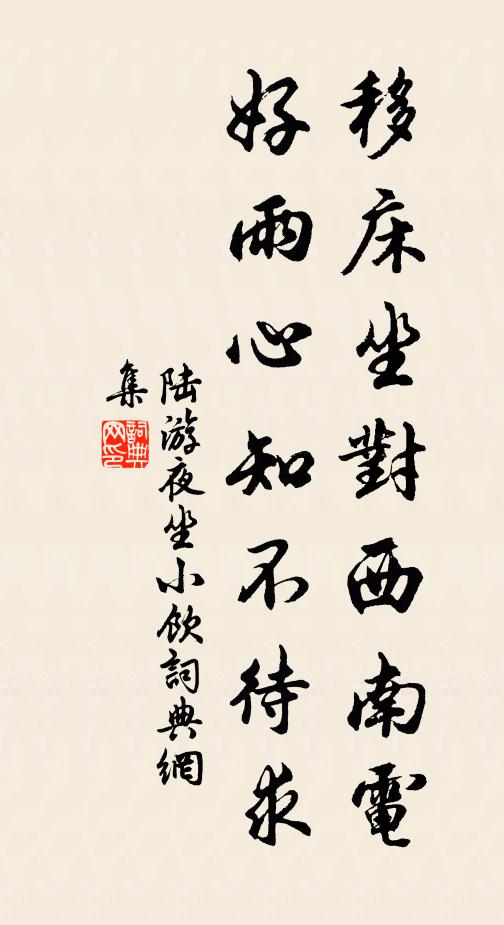 移床坐對西南電
好雨心知不待求
陆游夜坐小飲詞典網
集
詞典
网印